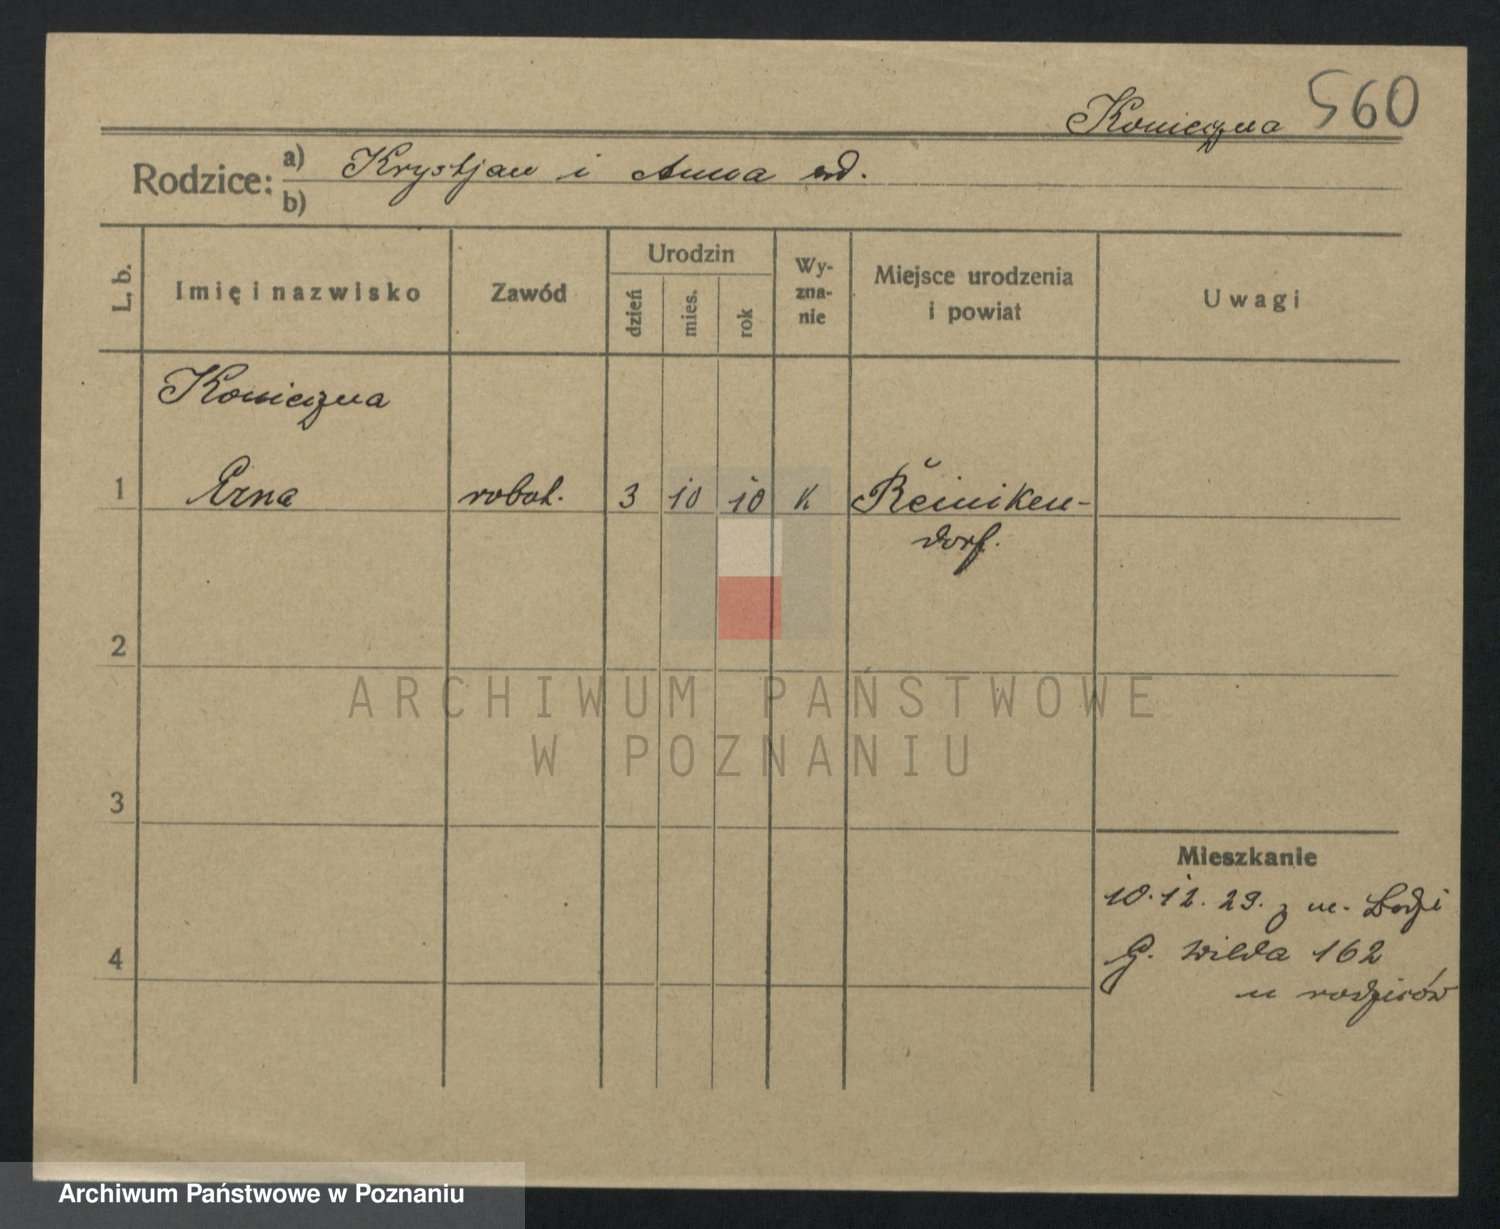 Konieczna 560
Rodzice: a) Krystjan i Anna
b)
L. b.
Imię i nazwisko
Zawód
Urodzin
dzień
mies.
rok
Wy-
zna-
nie
Miejsce urodzenia
i powiat
Uwagi
Konieczna
1 Erna robot. 3 10 10 K Reiniken-
dorf.
2
3
4
Mieszkanie
10.12.29. z m. Łodzi
G. Wilda 162
u rodziców
ARCHIWUM PAŃSTWOWE
W POZNANIU
Archiwum Państwowe w Poznaniu